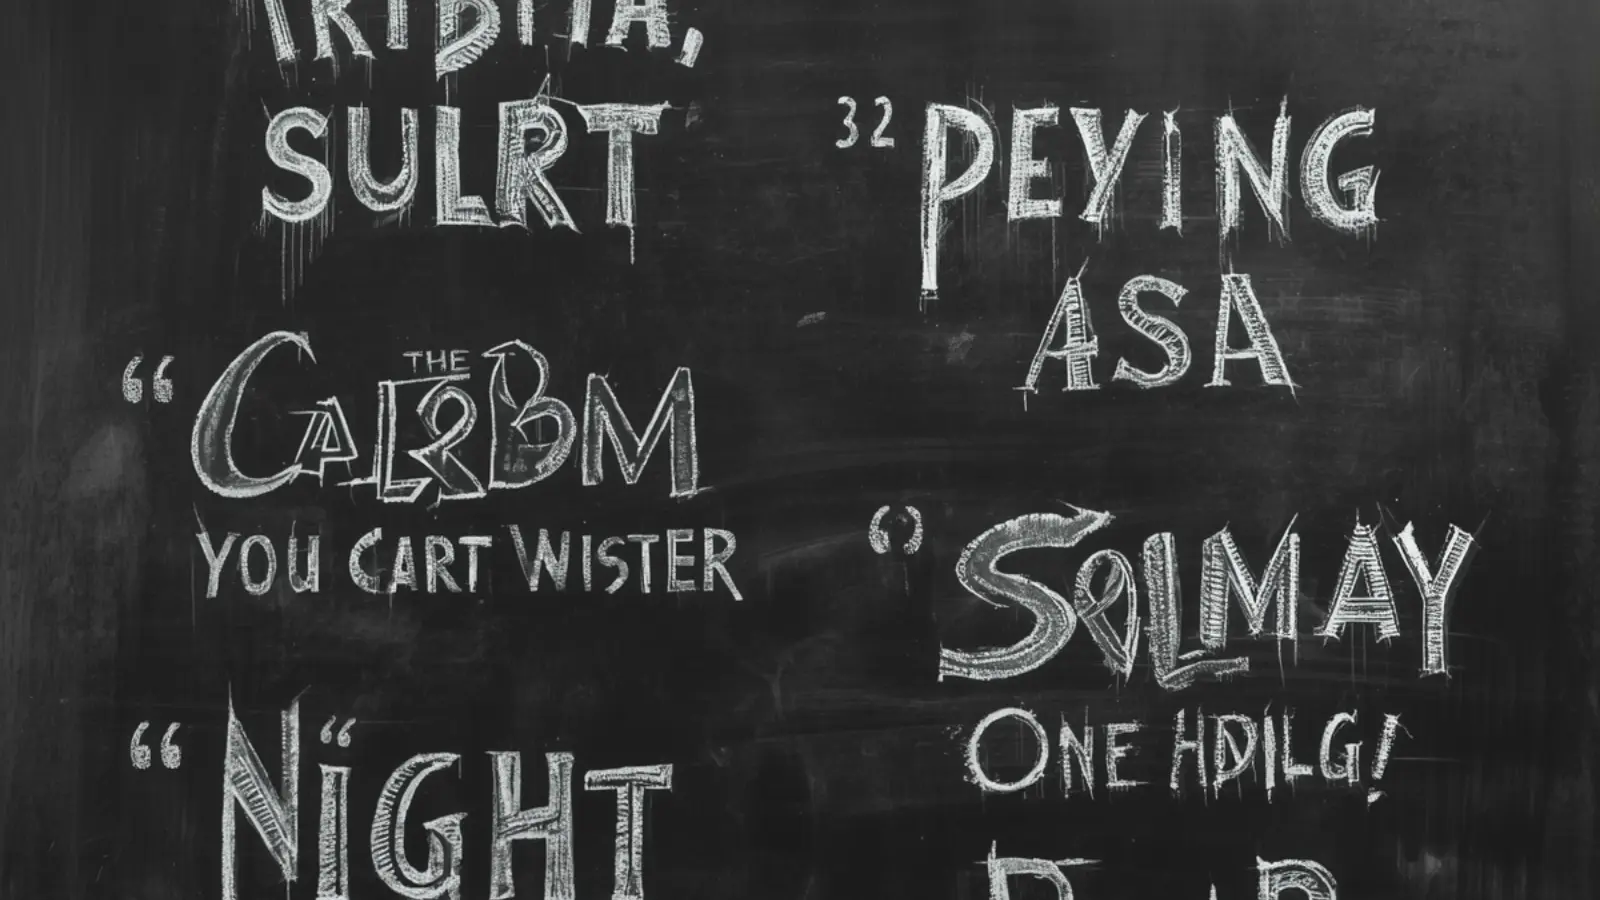 SULRT
“ THE
CALRBM
YOU CART WISTER
“ NIGHT
32 PEYING
ASA
SOLMAY
ONE HDILG!